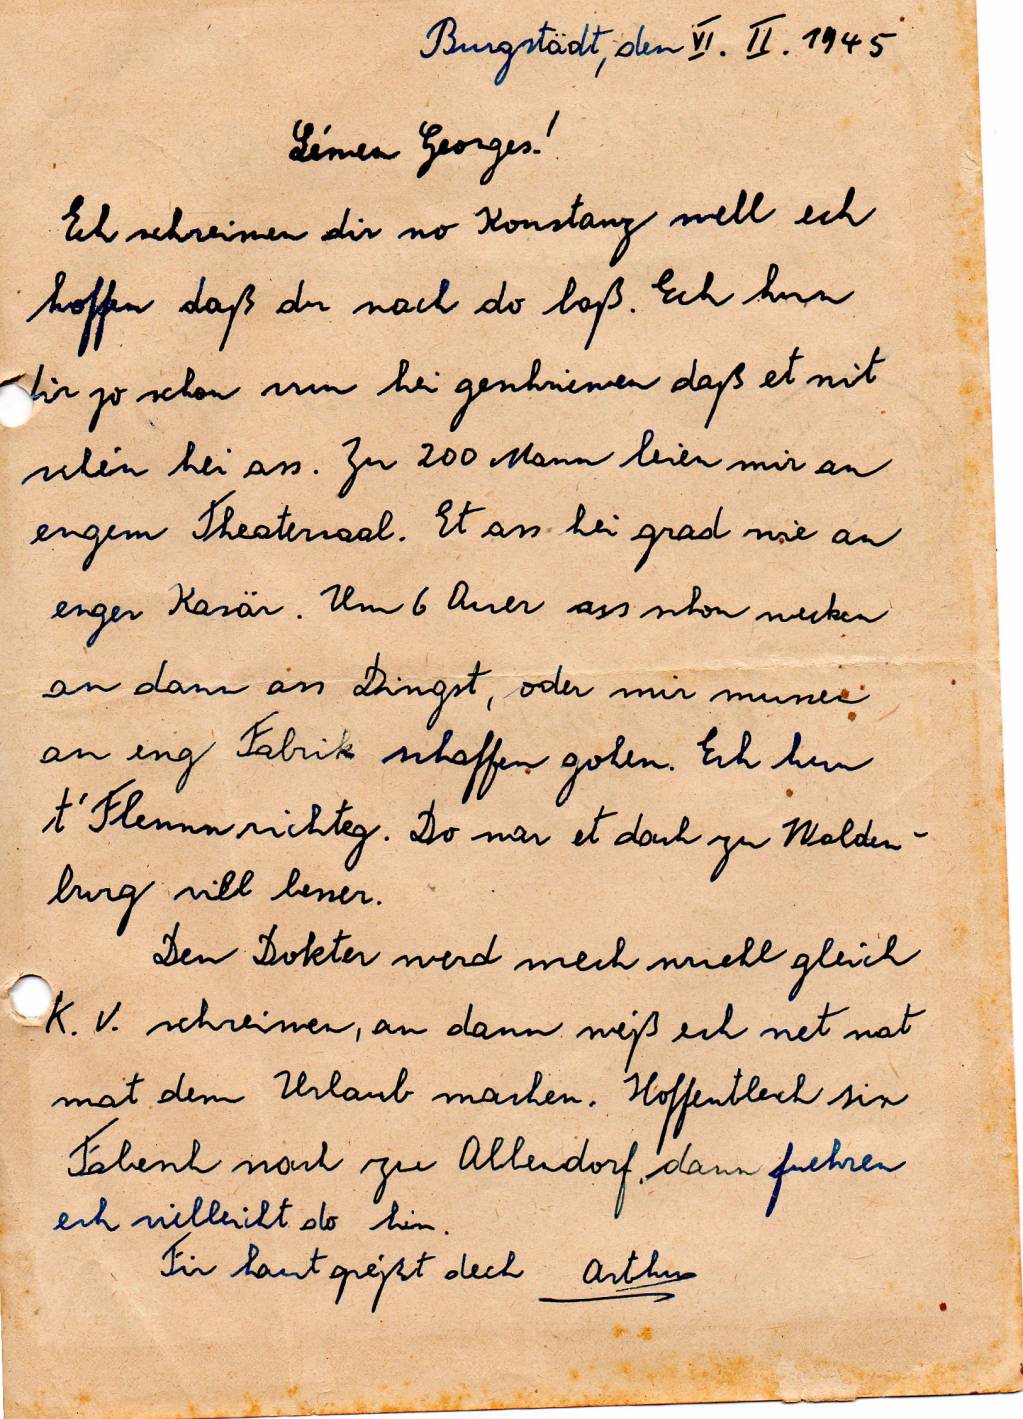 Burgstädt, den VI. II. 1945
Léiwen Georges!
Ech schreiwen dir no Konstanz well ech
hoffen daß du nach do baß. Ech hun
dir jo schon vun hei geschriewen daß et nit
schéin hei ass. Zu 200 Mann leien mir an
engem Theatersaal. Et ass hei grad wie an
enger Kasär. Um 6 Auer ass schon wecken
an dann ass Dingst, oder mir mussen
an eng Fabrik schaffen gohen. Ech hun
t'Flemm richteg. Do war et dach zu Walden-
burg vill besser.
Den Dokter werd mech wuehl gleich
K. V. schreiwen, an dann weiß ech net wat
mat dem Urlaub machen. Hoffentlech sin
nach zu Allendorf, dann fuehren
ech vielleicht do hin.
Fir haut gréißt dech Arthur